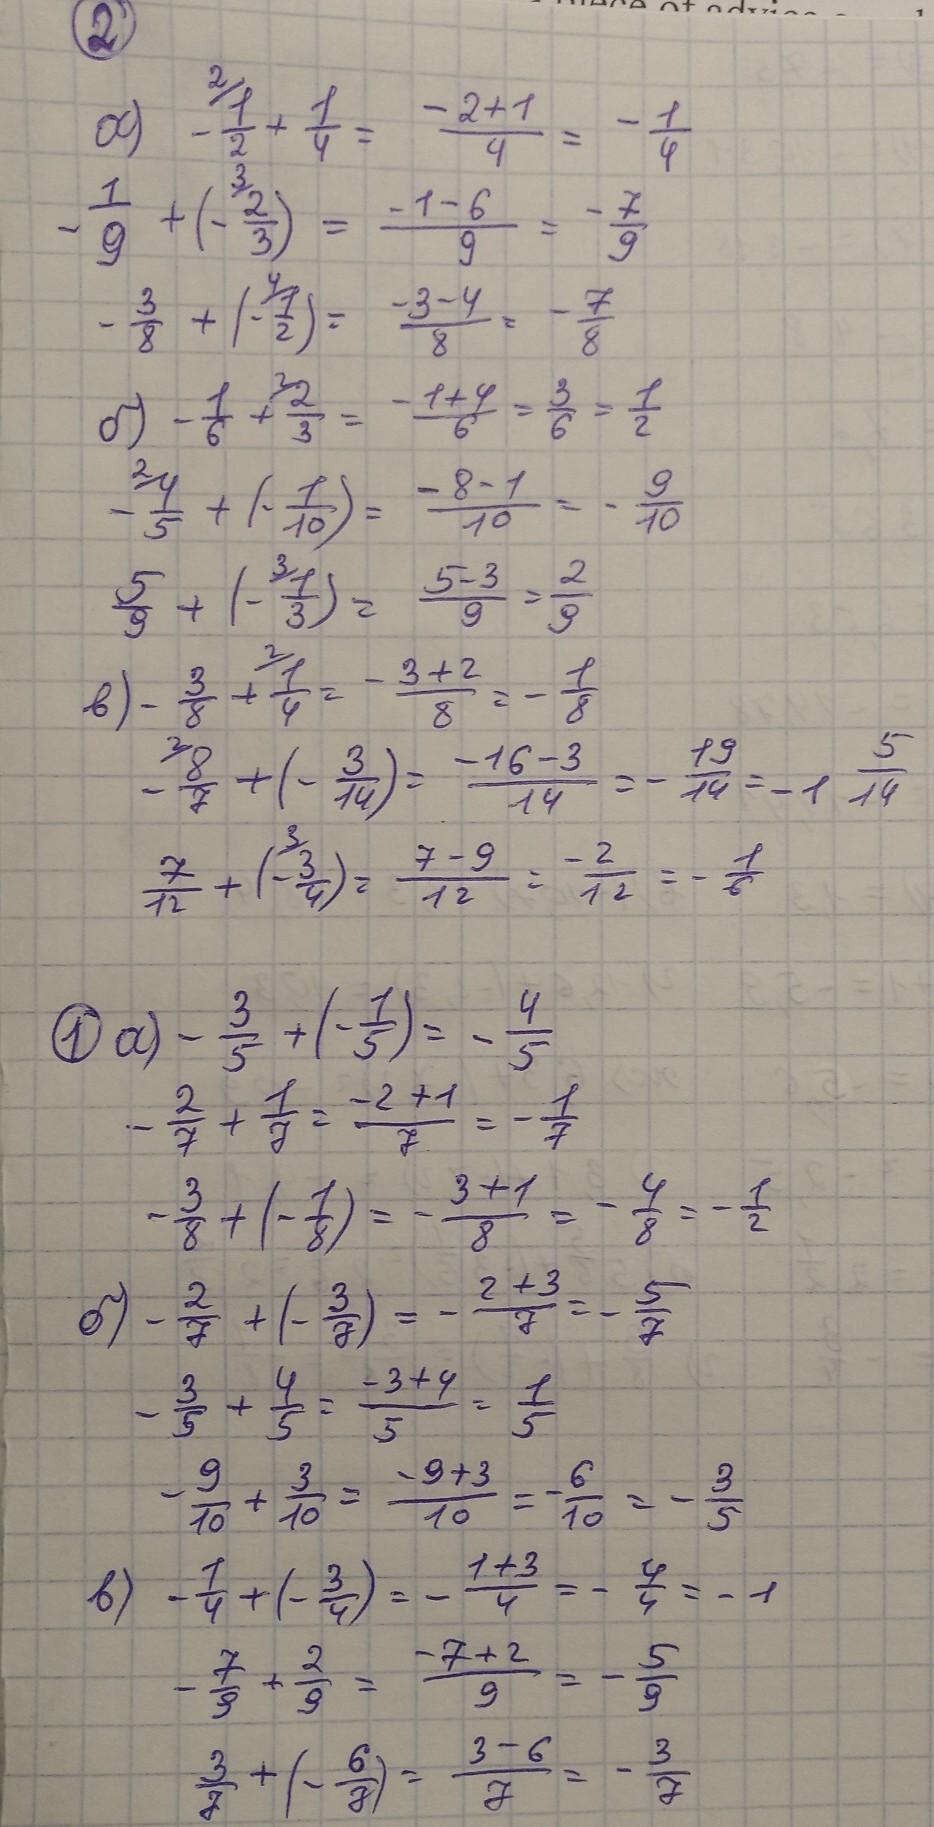 piece of advice
2
а) - ²⁄1/2 + 1/4 = (-2+1)/4 = - 1/4
- 1/9 + (- ³⁄2/3) = (-1-6)/9 = -7/9
- 3/8 + (- ⁴⁄1/2) = (-3-4)/8 = - 7/8
б) - 1/6 + ²⁄2/3 = (-1+4)/6 = 3/6 = 1/2
- ²⁄4/5 + (- 1/10) = (-8-1)/10 = - 9/10
5/9 + (- ³⁄1/3) = (5-3)/9 = 2/9
в) - 3/8 + ²⁄1/4 = - (3+2)/8 = - 1/8
- ²⁄8/7 + (- 3/14) = (-16-3)/14 = - 19/14 = -1 5/14
7/12 + (- ³⁄3/4) = (7-9)/12 = -2/12 = - 1/6
1 а) - 3/5 + (- 1/5) = - 4/5
- 2/7 + 1/7 = (-2+1)/7 = - 1/7
- 3/8 + (- 1/8) = - (3+1)/8 = - 4/8 = - 1/2
б) - 2/7 + (- 3/7) = - (2+3)/7 = - 5/7
- 3/5 + 4/5 = (-3+4)/5 = 1/5
- 9/10 + 3/10 = (-9+3)/10 = - 6/10 = - 3/5
в) - 1/4 + (- 3/4) = - (1+3)/4 = - 4/4 = - 1
- 7/9 + 2/9 = (-7+2)/9 = - 5/9
3/7 + (- 6/7) = (3-6)/7 = - 3/7